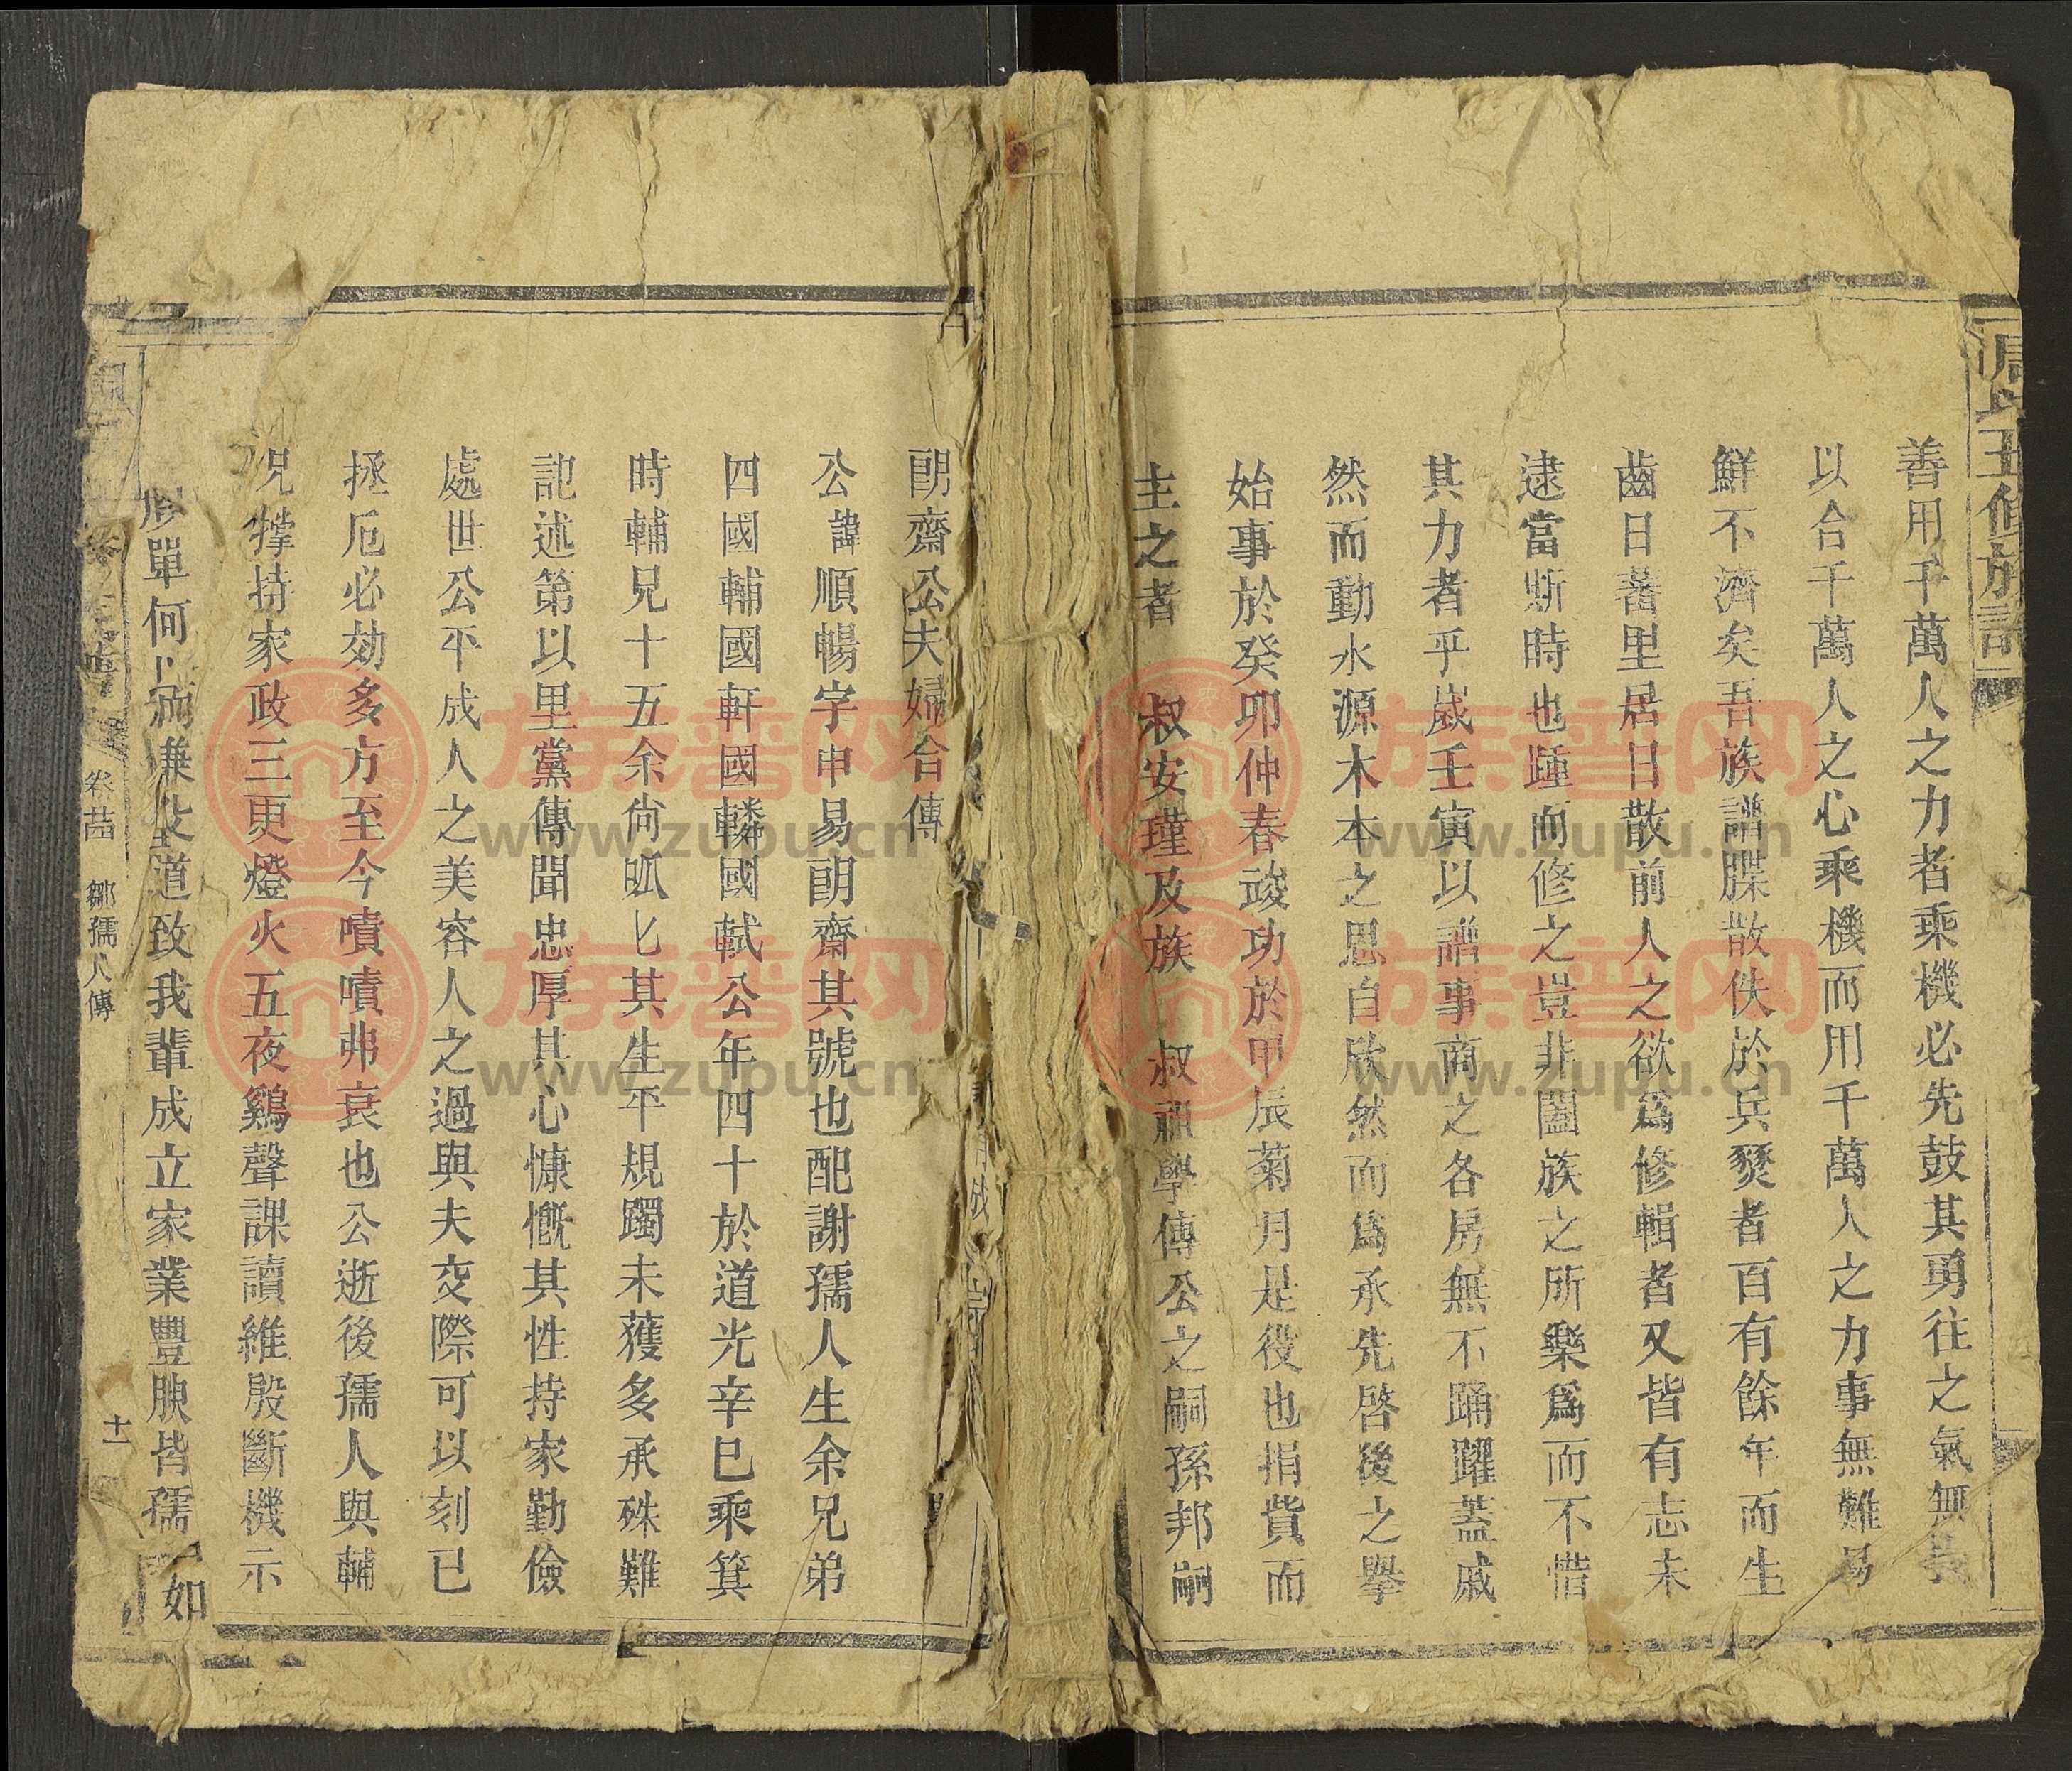 五修族譜
善用千萬人之力者乘機必先鼓其勇往之氣無長
以合千萬人之心乘機而用千萬人之力事無難易
鮮不濟矣吾族譜牒散佚於兵燹者百有餘年而生
齒日蕃里居日散前人之欲爲修輯者又皆有志未
逮當斯時也踵而修之豈非闔族之所樂爲而不惜
其力者乎歲壬寅以譜事商之各房無不踊躍蓋咸
然而動水源木本之思自欣然而爲承先啓後之擧
始事於癸卯仲春竣功於甲辰菊月是役也捐貲而
主之者 叔安瑾及族 叔祖學傳公之嗣孫邦嗣
朗齋公夫婦合傳
公諱順暢字申易朗齋其號也配謝孺人生余兄弟
四國輔國軒國轔國軾公年四十於道光辛巳乘箕
時輔兄十五余尙呱匕其生平規躅未獲多承殊難
記述第以里黨傳聞忠厚其心慷慨其性持家勤儉
處世公平成人之美容人之過與夫交際可以刻已
拯厄必効多方至今嘖嘖弗衰也公逝後孺人與輔
兄撐持家政三更燈火五夜鷄聲課讀維殷斷機示
單何 兼 道致我輩成立家業豐腴皆孺
如
卷 鄒孺人傳
十一
族谱网
www.zupu.cn
族谱网
www.zupu.cn
族谱网
www.zupu.cn
族谱网
www.zupu.cn